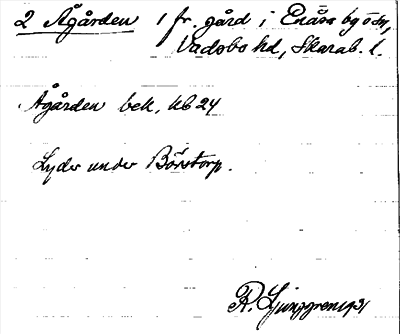 2 Ågården 1 fr. gård i Enåsa by o. sn,
Vadsbo hd, Skarab. l.
Ågården bek. Ub 24
Lyder under Börstorp.
R. Ljunggren 1931